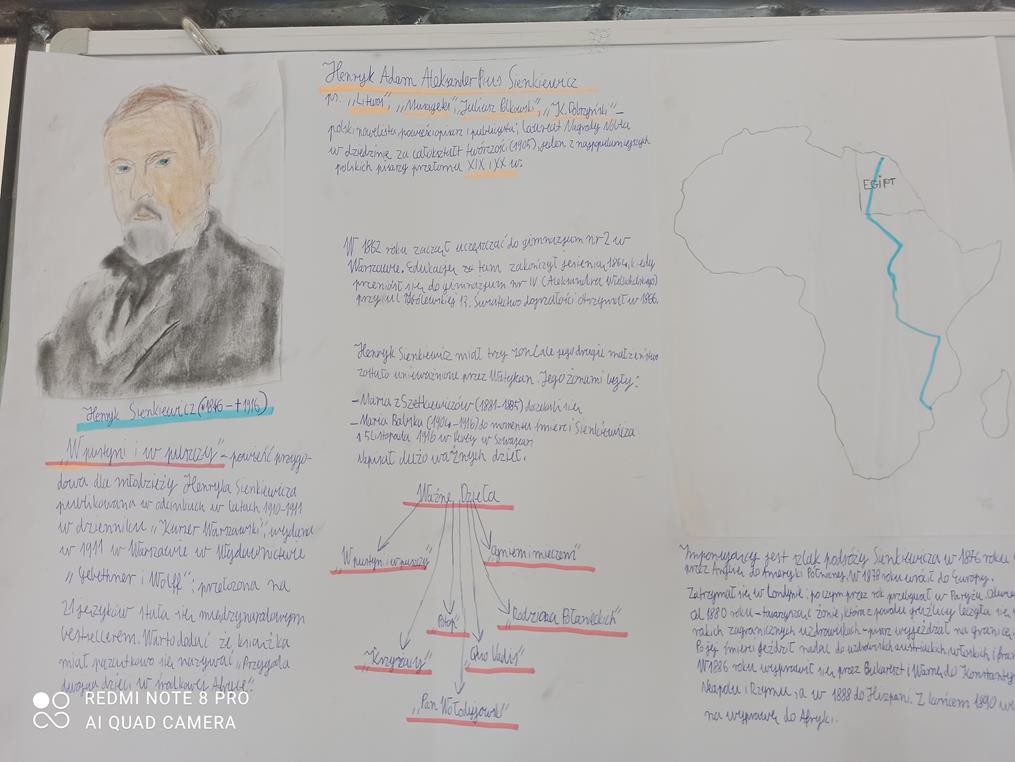 Henryk Adam Aleksander Pius Sienkiewicz
ps. „Litwos", „Musagetes", „Juliusz Polkowski", „K. Dobrzyński" –
polski nowelista powieściopisarz i publicysta; laureat Nagrody Nobla
w dziedzinie za całokształt twórczości (1905), jeden z najpopularniejszych
polskich pisarzy przełomu XIX i XX w.
W 1862 roku zaczął uczęszczać do gimnazjum nr 2 w
Warszawie. Edukację tam zakończył jesienią 1864, kiedy
przeniósł się do gimnazjum nr IV (Aleksandra Wielkopolskiego)
przy ul Królewskiej 13. Świadectwo dojrzałości otrzymał w 1866.
Henryk Sienkiewicz miał trzy żony (ale jego drugie małżeństwo
zostało unieważnione przez Watykan. Jego żonami były:
– Maria z Szetkiewiczów (1881-1885)
– Maria Babska (1904-1916) do momentu śmierci Sienkiewicza
15 Listopada 1916 w Vevey w Szwajcari
Napisał dużo ważnych dzieł.
Ważne Dzieła
„W pustyni i w puszczy"
„Ogniem i mieczem"
„Potop"
„Rodzina Połanieckich"
„Krzyżacy"
„Quo Vadis"
„Pan Wołodyjowski"
Henryk Sienkiewicz (*1846 - †1916)
„W pustyni i w puszczy" – powieść przygo-
dowa dla młodzieży Henryka Sienkiewicza
publikowana w odcinkach w latach 1910-1911
w dzienniku „Kurier Warszawski", wydana
w 1911 w Warszawie w Wydawnictwie
„Gebethner i Wolff"; przełożona na
21 języków stała się międzynarodowym
bestsellerem. Warto dodać że książka
miał początkowo się nazywać „Przygoda
dwojga dzieci w środkowej Afryce".
EGIPT
Imponujący jest szlak podróży Sienkiewicza w 1876 roku
przez Anglię do Ameryki Północnej. W 1878 roku wrócił do Europy.
Zatrzymał się w Londynie; poczym przez rok przebywał w Paryżu,
od 1880 roku – towarzysząc żonie, która z powodu gruźlicy leczyła się
zagranicznych uzdrowiskach – wyjeżdżał na granicę.
Po jej śmierci jeździł nadal do uzdrowisk austriackich, włoskich i
W 1886 roku wyprawił się przez Bukareszt i Warnę do
Neapolu i Rzymu, a w 1888 do Hiszpani. Z końcem 1890
na wyprawę do Afryki.
REDMI NOTE 8 PRO
AI QUAD CAMERA